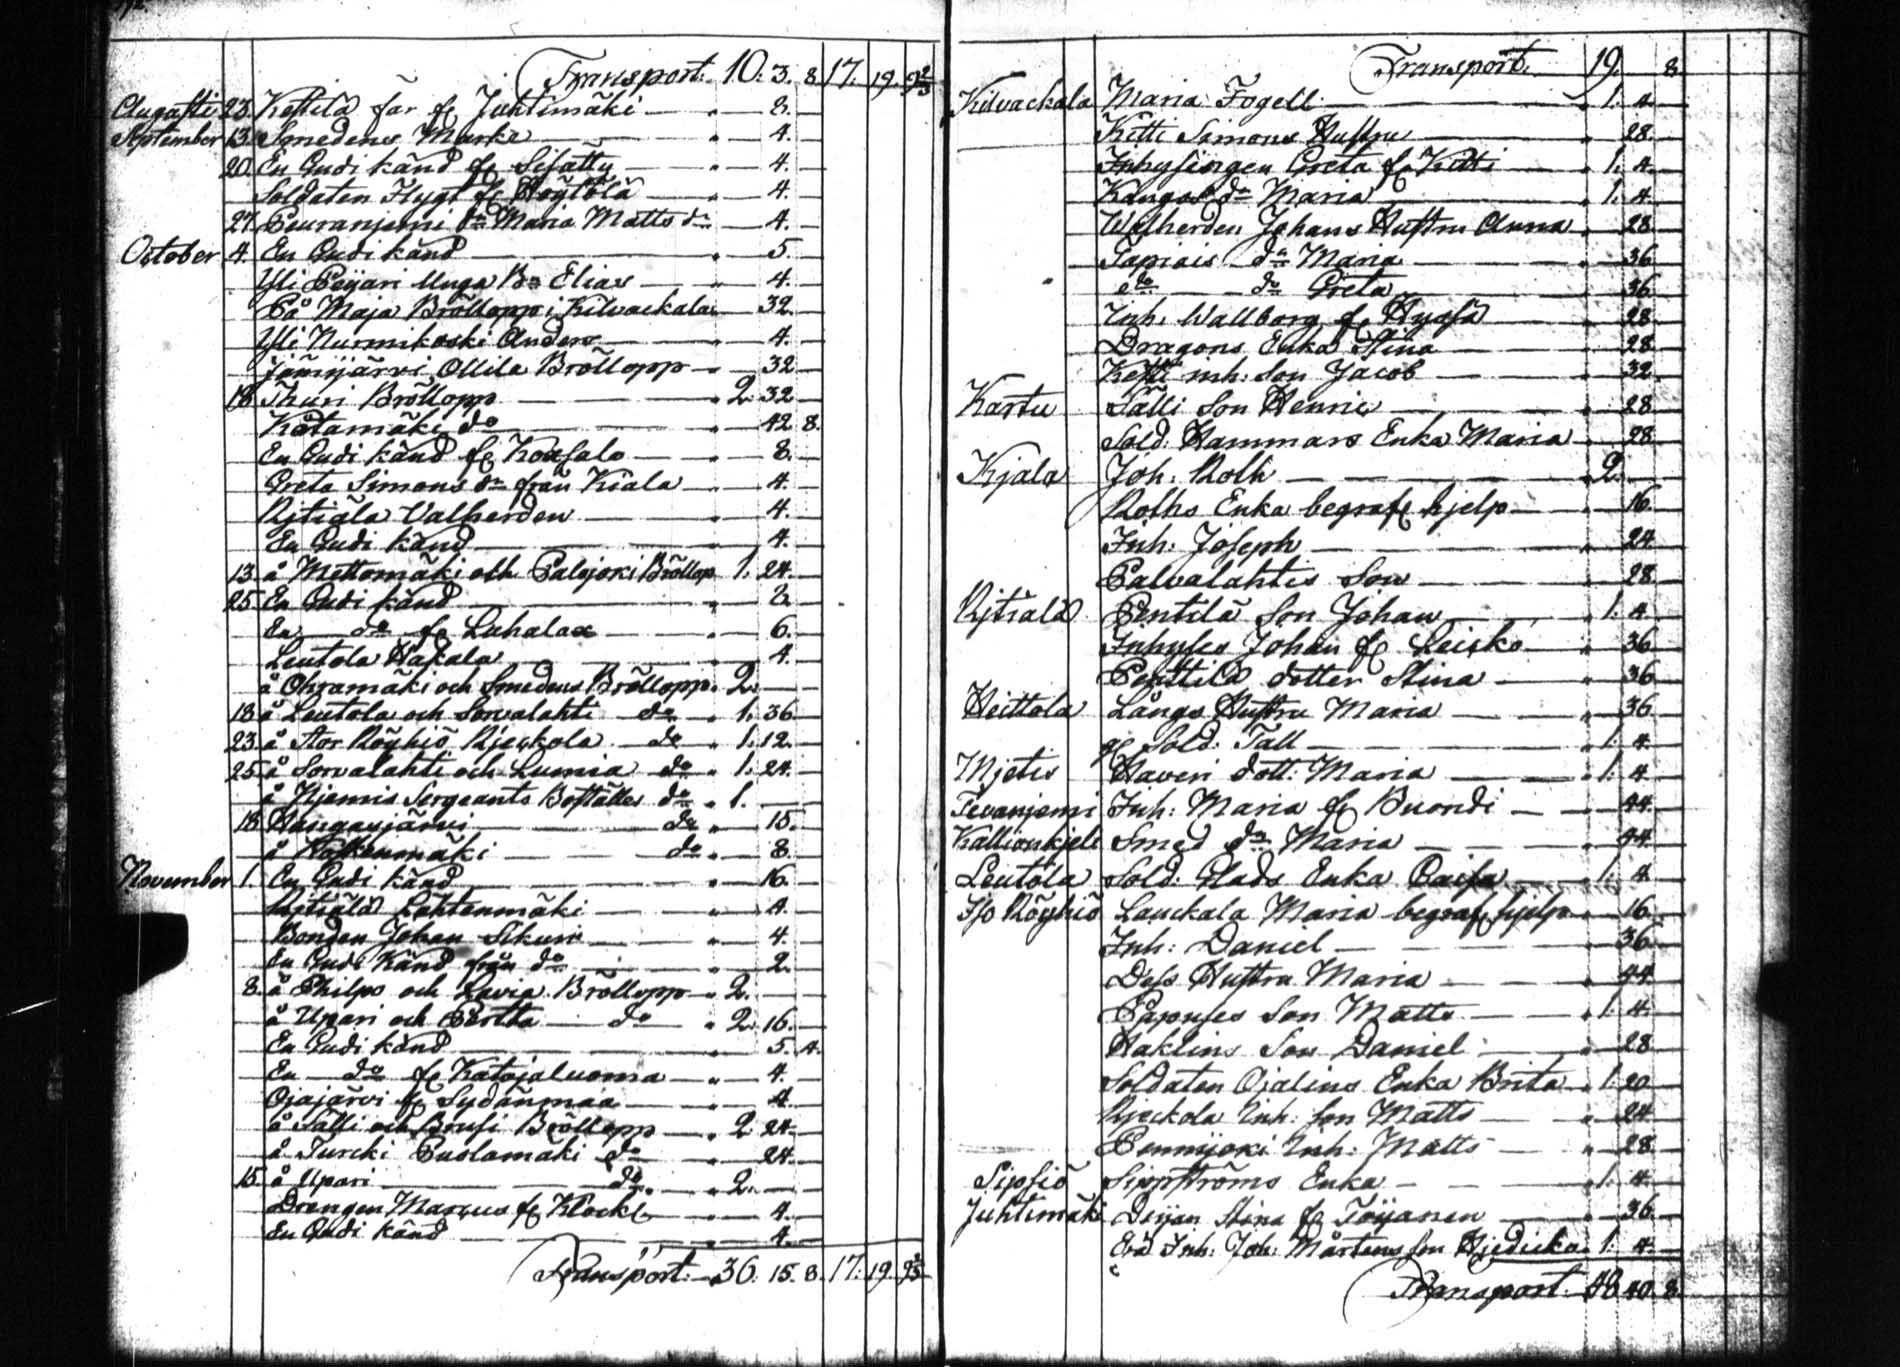 Transport: 10. 3. 8. 17. 19. 9 2/3
Augusti 23. Kettilä far fr Juhtimäki — 8.
September 13. Smedens Marka — 4.
20. En Gudi känd fr — 4.
Soldaten Flygt fr Höytölä — 4.
27. Peuraniemi dr Maria Matts dr — 4.
October 4. En Gudi känd — 5.
Yli Peijari Unga Bn Elias — 4.
På Maja Bröllopp i Kilvackala — 32.
Yli Nurmikoski Anders — 4.
Jämijärvi Ollila Bröllopp — 32
18. Thuri Bröllopp — 2. 32
Kätamäki do — 42. 8.
En Gudi känd fr — 8.
Greta Simons dr från Kiala — 4.
Rjtiälä Valherden — 4.
En Gudi känd — 4.
13. å Mettomäki och Palojoki Bröllop 1. 24.
25. En Gudi känd — 2.
En do fr Luhalax — 6.
Leutola Hakala — 4.
å Ohramäki och Smedens Bröllopp 2. —
18. å Leutola och Sorvalahti do 1. 36
23. å Stor Röyhiö Rjeckola do 1. 12.
25. å Sorvalahti och Lumia do 1. 24.
å Njemis Sergeants Boställes do 1. —
18. Kangasjärvi do — 15.
å Koskenmäki do — 8.
November 1. En Gudi känd — 16.
Rjtiälä Lähtenmäki — 4.
Bonden Johan Skuri — 4.
En Gudi Känd från do — 2.
8. å Philpo och Lavia Bröllopp 2. —
å Upari och Perttu do 2. 16.
En Gudi känd — 5. 4.
En do fr Katajaluoma — 4.
Ojajärvi fr Sydänmaa — 4
å Sälli och Brusi Bröllopp 2. 24.
å Turcki Puslamäki do — 24.
15. å Upari do 2. —
Drengen Marcus fr Klockl — 4.
En Gudi känd — 4.
Transport: 36. 15. 8. 17. 19. 9 2/3
Transport. 19. 8.
Kilvackala Maria Fogell — 1. 4.
Kitti Simons Hustru — 28.
Inhysingen Greta fr Kitti 1. 4.
Kangas dr Maria — 1. 4
Walherden Johans Hustru Anna 28
Tapiais dr Maria — 36
do — dr Greta — 36.
Inh. Wallborg fr Hyrsä — 28
Dragons Enka Stina — 28
Ketti inh: Son Jacob — 32.
Kartu Sälli Son Henric — 28
Sold: Hammars Enka Maria 28
Kjala Joh: Roth — 2.
Roths Enka begrafn hjelp — 16.
Inh: Joseph — 24
Palvalahtis Son — 28
Rjtiälä Penttilä Son Johan 1. 4
Inhyses Johan fr Leisko — 36
Penttilä dotter Stina — 36
Heittola Långs Hustru Maria — 36
gl Sold: Täll — 1. 4.
Mjetis Haveri dott: Maria — 1. 4
Tevanjemi Inh: Maria fr Buondi — 44
Kallionkjele Smed dr Maria — 44
Leutola Sold: Glads Enka Caisa 1. 4
Iso Röyhiö Lauckala Maria begraf hjelp 16.
Inh: Daniel — 36
Dess Hustru Maria — 44
Papuses Son Matts — 1. 4.
Haklins Son Daniel — 28
Soldaten Ojalins Enka Brita 1. 20
Rjeckola Inh: son Matts — 24
Pennijoki Inh: Matts — 28
Sipsiö Sippströms Enka — 1. 4.
Juhtimäki Dejjan Stina fr Töijanen — 36
Erä Inh: Joh: Mårtens son Hjedicka 1. 4.
Transport 48. 40. 8